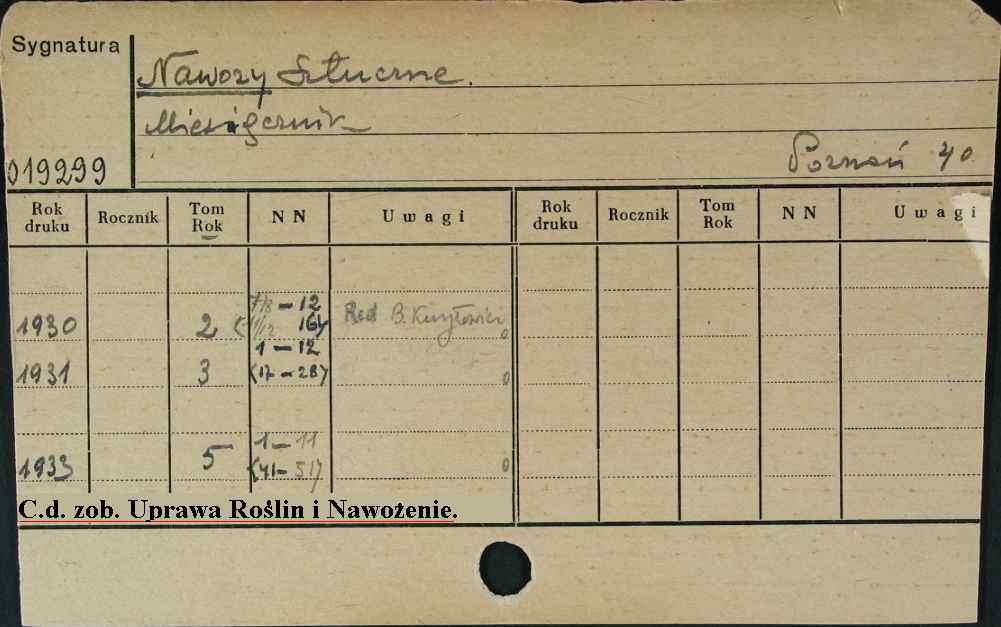 Sygnatura
Nawozy Sztuczne.
Miesięcznik
Poznań 40
019299
Rok druku Rocznik Tom Rok N N Uwagi Rok druku Rocznik Tom Rok N N Uwagi
7/8 – 12
1930 2 16) Red B.
1 – 12
1931 3 (17 – 28) 0
1 – 11
1933 5 (41 – 51) 0
C.d. zob. Uprawa Roślin i Nawożenie.